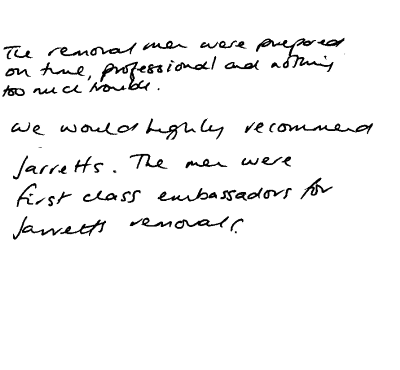 The removal men were prepared
on time, professional and nothing
too much trouble.
We would highly recommend
Jarretts. The men were
first class embassadors for
Jarretts removals.